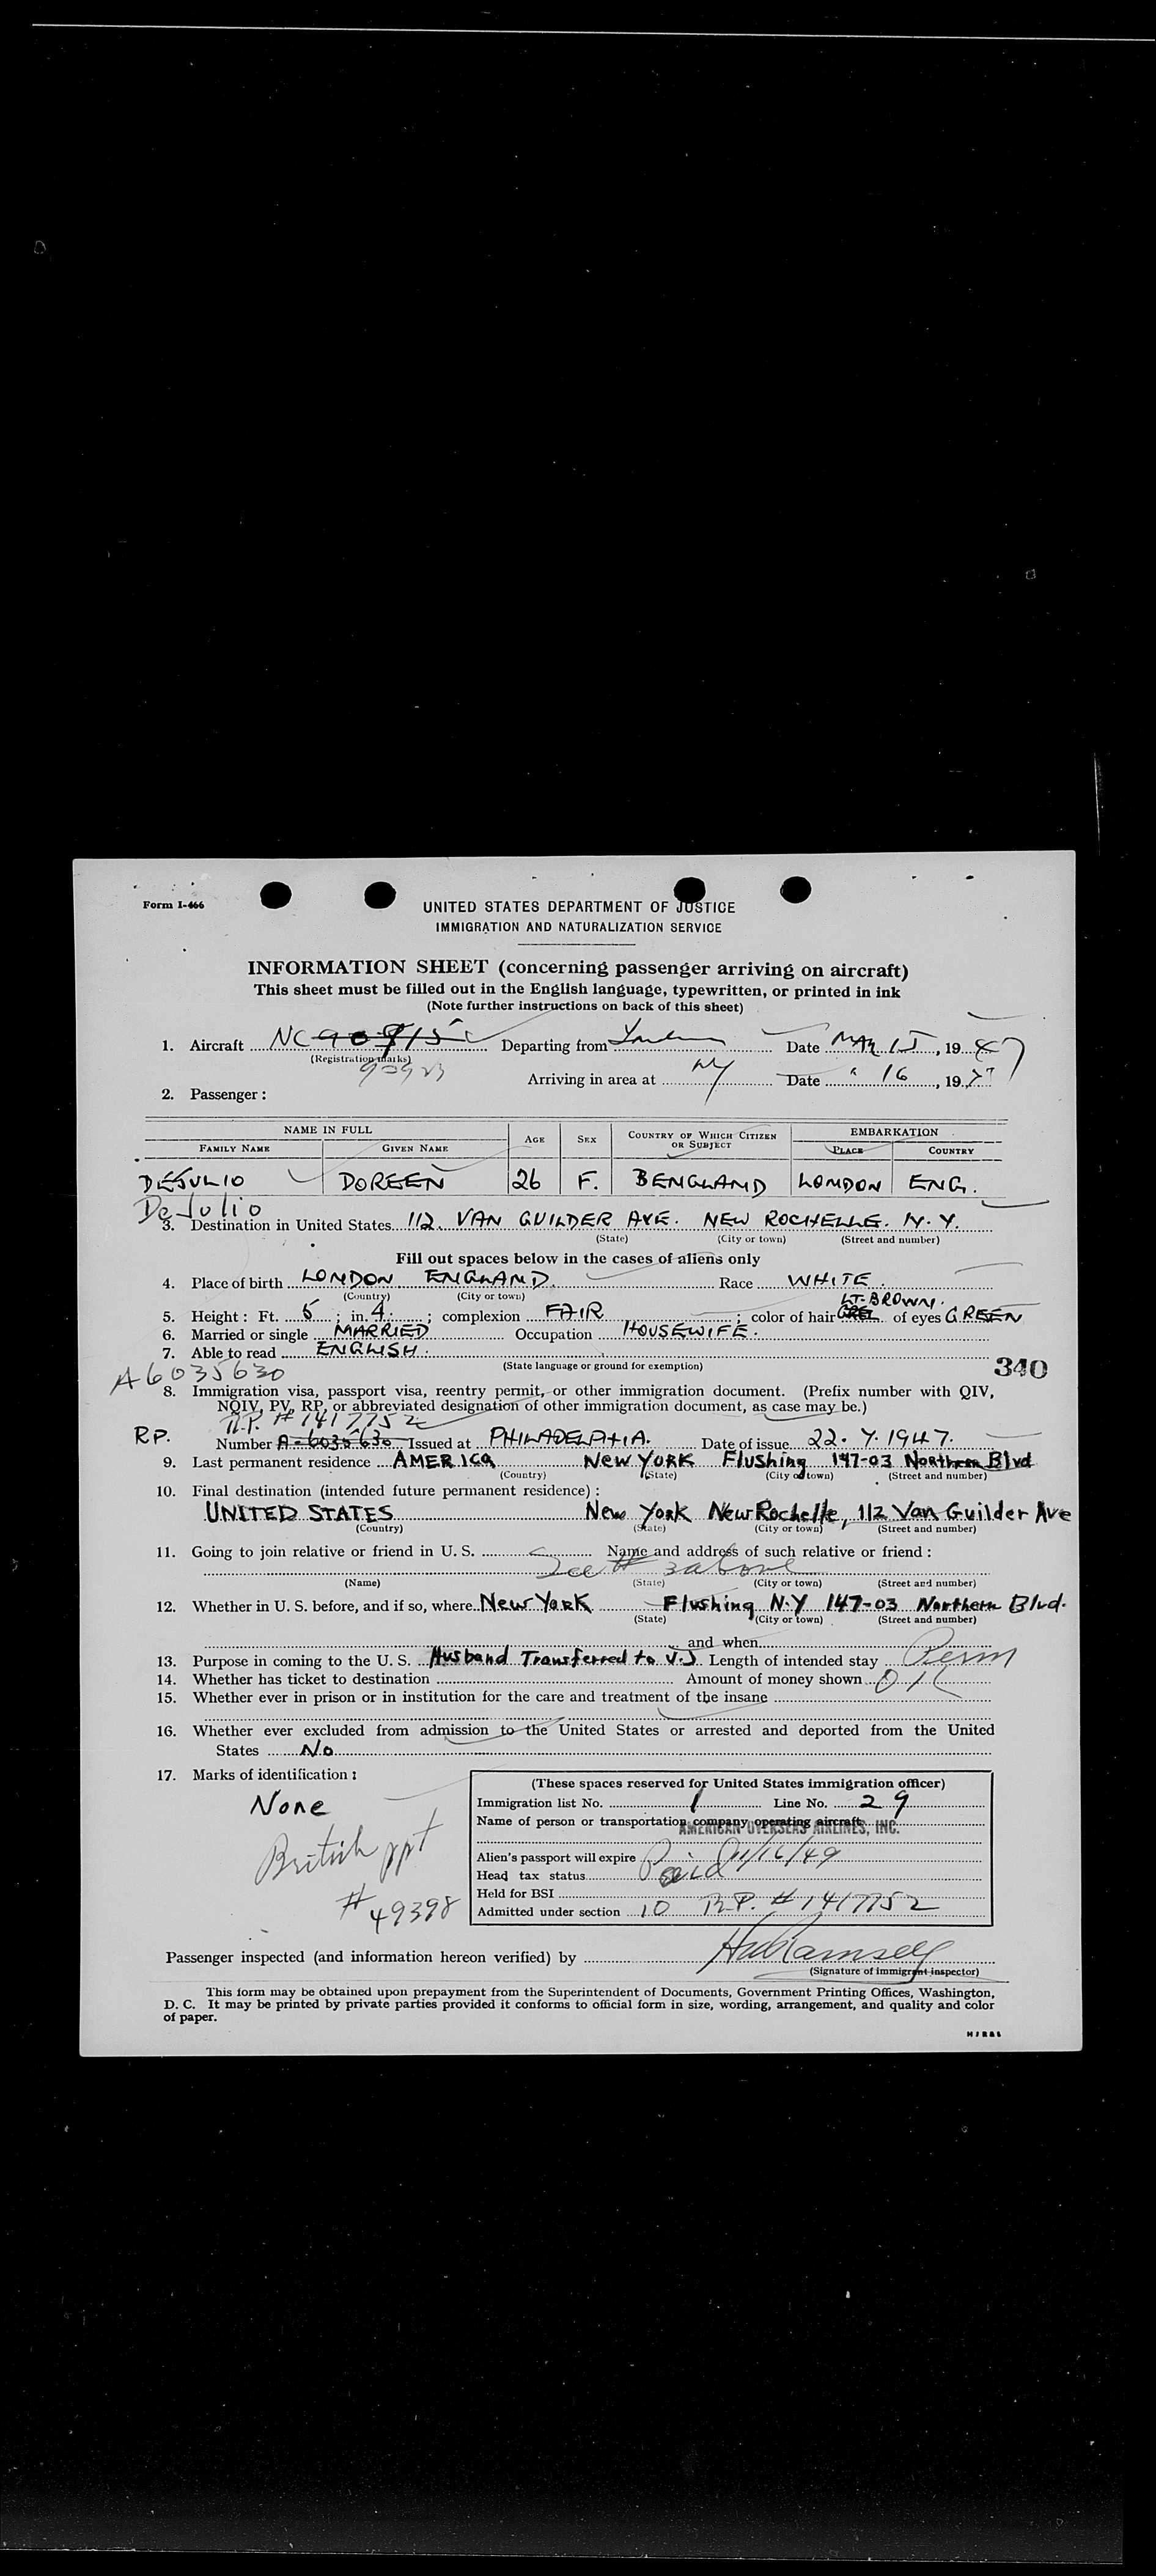 Form I-466
UNITED STATES DEPARTMENT OF JUSTICE
IMMIGRATION AND NATURALIZATION SERVICE
INFORMATION SHEET (concerning passenger arriving on aircraft)
This sheet must be filled out in the English language, typewritten, or printed in ink
(Note further instructions on back of this sheet)
1. Aircraft NC 90915 Departing from London Date MAY 15, 1947
(Registration marks)
90923
Arriving in area at NY Date " 16, 19
2. Passenger:
NAME IN FULL AGE SEX COUNTRY OF WHICH CITIZEN OR SUBJECT EMBARKATION
FAMILY NAME GIVEN NAME PLACE COUNTRY
DEJULIO DOREEN 26 F. BENGLAND LONDON ENG.
DeJulio
3. Destination in United States 112 VAN GUILDER AVE. NEW ROCHELLE. N.Y.
(State) (City or town) (Street and number)
Fill out spaces below in the cases of aliens only
4. Place of birth LONDON ENGLAND Race WHITE.
(Country) (City or town)
LT. BROWN.
5. Height: Ft. 5; in. 4; complexion FAIR; color of hair of eyes GREEN
6. Married or single MARRIED Occupation HOUSEWIFE.
7. Able to read ENGLISH.
(State language or ground for exemption)
340
A6035630
8. Immigration visa, passport visa, reentry permit, or other immigration document. (Prefix number with QIV,
NQIV, PV, RP, or abbreviated designation of other immigration document, as case may be.)
R.P. # 1417752
RP. Number A-6035630 Issued at PHILADELPHIA. Date of issue 22. 4. 1947.
9. Last permanent residence AMERICA New York Flushing 147-03 Northern Blvd
(Country) (State) (City or town) (Street and number)
10. Final destination (intended future permanent residence):
UNITED STATES New York New Rochelle, 112 Van Guilder Ave
(Country) (State) (City or town) (Street and number)
11. Going to join relative or friend in U. S. Name and address of such relative or friend:
See # 3 above
(Name) (State) (City or town) (Street and number)
12. Whether in U. S. before, and if so, where New York Flushing N.Y 147-03 Northern Blvd.
(State) (City or town) (Street and number)
and when
13. Purpose in coming to the U. S. Husband Transferred to U.S Length of intended stay Perm
14. Whether has ticket to destination Amount of money shown OK
15. Whether ever in prison or in institution for the care and treatment of the insane
16. Whether ever excluded from admission to the United States or arrested and deported from the United
States No
17. Marks of identification:
None
British ppt
# 49398
(These spaces reserved for United States immigration officer)
Immigration list No. 1 Line No. 29
Name of person or transportation company operating aircraft
AMERICAN OVERSEAS AIRLINES, INC.
Alien's passport will expire 4/16/49
Head tax status Paid
Held for BSI
Admitted under section 10 R.P. # 1417752
Passenger inspected (and information hereon verified) by
(Signature of immigrant inspector)
This form may be obtained upon prepayment from the Superintendent of Documents, Government Printing Offices, Washington,
D. C. It may be printed by private parties provided it conforms to official form in size, wording, arrangement, and quality and color
of paper.